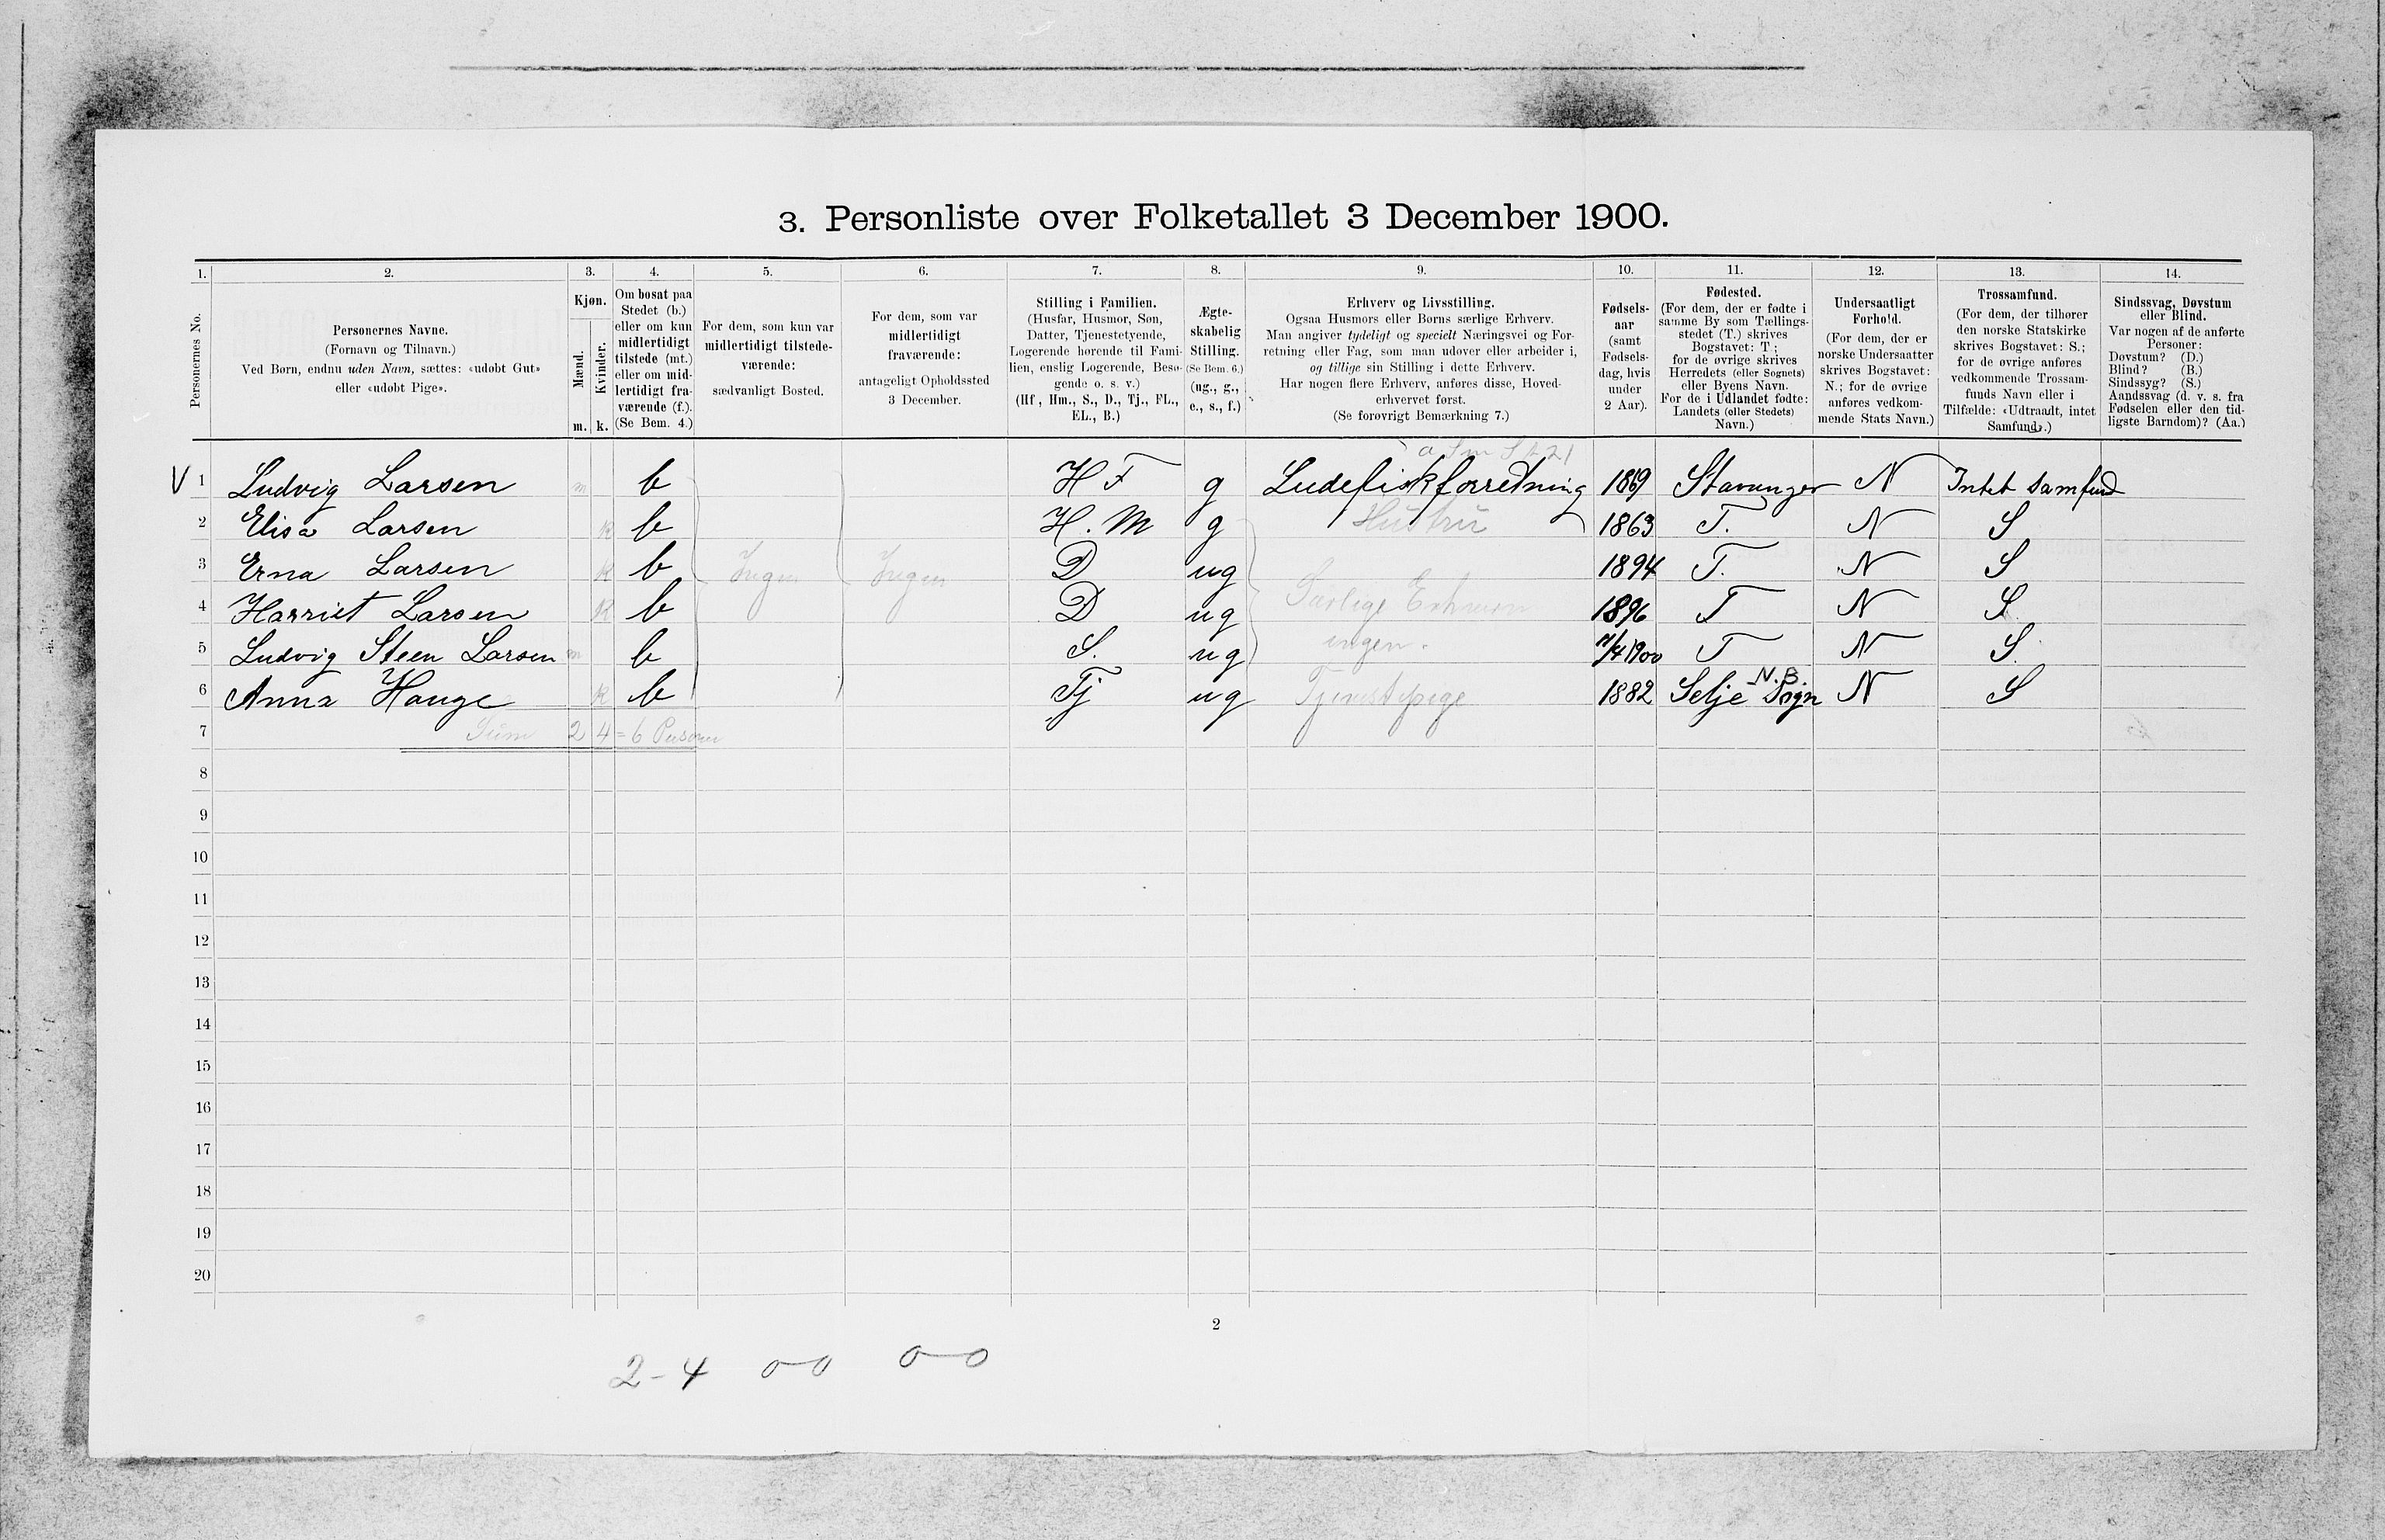 3. Personliste over Folketallet 3 December 1900.
1. 2. 3. 4. 5. 6. 7. 8. 9. 10. 11. 12. 13. 14.
Personernes No.
Personernes Navne.
(Fornavn og Tilnavn.)
Ved Børn, endnu uden Navn, sættes: «udøbt Gut»
eller «udøbt Pige».
Kjøn.
Mænd.
Kvinder.
m. k.
Om bosat paa
Stedet (b.)
eller om kun
midlertidigt
tilstede (mt.)
eller om mid-
lertidigt fra-
værende (f.).
(Se Bem. 4.)
For dem, som kun var
midlertidigt tilstede-
værende:
sædvanligt Bosted.
For dem, som var
midlertidigt
fraværende:
antageligt Opholdssted
3 December.
Stilling i Familien.
(Husfar, Husmor, Søn,
Datter, Tjenestetyende,
Logerende hørende til Fami-
lien, enslig Logerende, Besø-
gende o. s. v.)
(Hf, Hm., S., D., Tj., FL.,
EL., B.)
Ægte-
skabelig
Stilling.
(Se Bem. 6.)
(ug., g.,
e., s., f.)
Erhverv og Livsstilling.
Ogsaa Husmors eller Børns særlige Erhverv.
Man angiver tydeligt og specielt Næringsvei og For-
retning eller Fag, som man udøver eller arbeider i,
og tillige sin Stilling i dette Erhverv.
Har nogen flere Erhverv, anføres disse, Hoved-
erhvervet først.
(Se forøvrigt Bemærkning 7.)
Fødsels-
aar
(samt
Fødsels-
dag, hvis
under
2 Aar).
Fødested.
(For dem, der er fødte i
samme By som Tællings-
stedet (T.) skrives
Bogstavet: T;
for de øvrige skrives
Herredets (eller Sognets)
eller Byens Navn.
For de i Udlandet fødte:
Landets (eller Stedets)
Navn.)
Undersaatligt
Forhold.
(For dem, der er
norske Undersaatter
skrives Bogstavet:
N.; for de øvrige
anføres vedkom-
mende Stats Navn.)
Trossamfund.
(For dem, der tilhører
den norske Statskirke
skrives Bogstavet: S.;
for de øvrige anføres
vedkommende Trossam-
funds Navn eller i
Tilfælde: «Udtraadt, intet
Samfund».)
Sindssvag, Døvstum
eller Blind.
Var nogen af de anførte
Personer:
Døvstum? (D.)
Blind? (B.)
Sindssyg? (S.)
Aandssvag (d. v. s. fra
Fødselen eller den tid-
ligste Barndom)? (Aa.)
V 1 Ludvig Larsen m b H F g Ludefiskforretning 1869 Stavanger N Intet samfund
2 Elisa Larsen k b H. M g Hustru 1863 T. N S
3 Erna Larsen k b Ingen Ingen D ug 1894 T. N S
4 Harriet Larsen k b D ug Særlige Erhverv 1896 T N S
5 Ludvig Steen Larsen m b S. ug ingen. 7/4 1900 T N S
6 Anna Hauge k b Tj ug Tjenestepige 1882 Selje Sogn N.B. N S
7 Sum 2 4 = 6 Personer
8
9
10
11
12
13
14
15
16
17
18
19
20
2
2-4 0-0 0-0